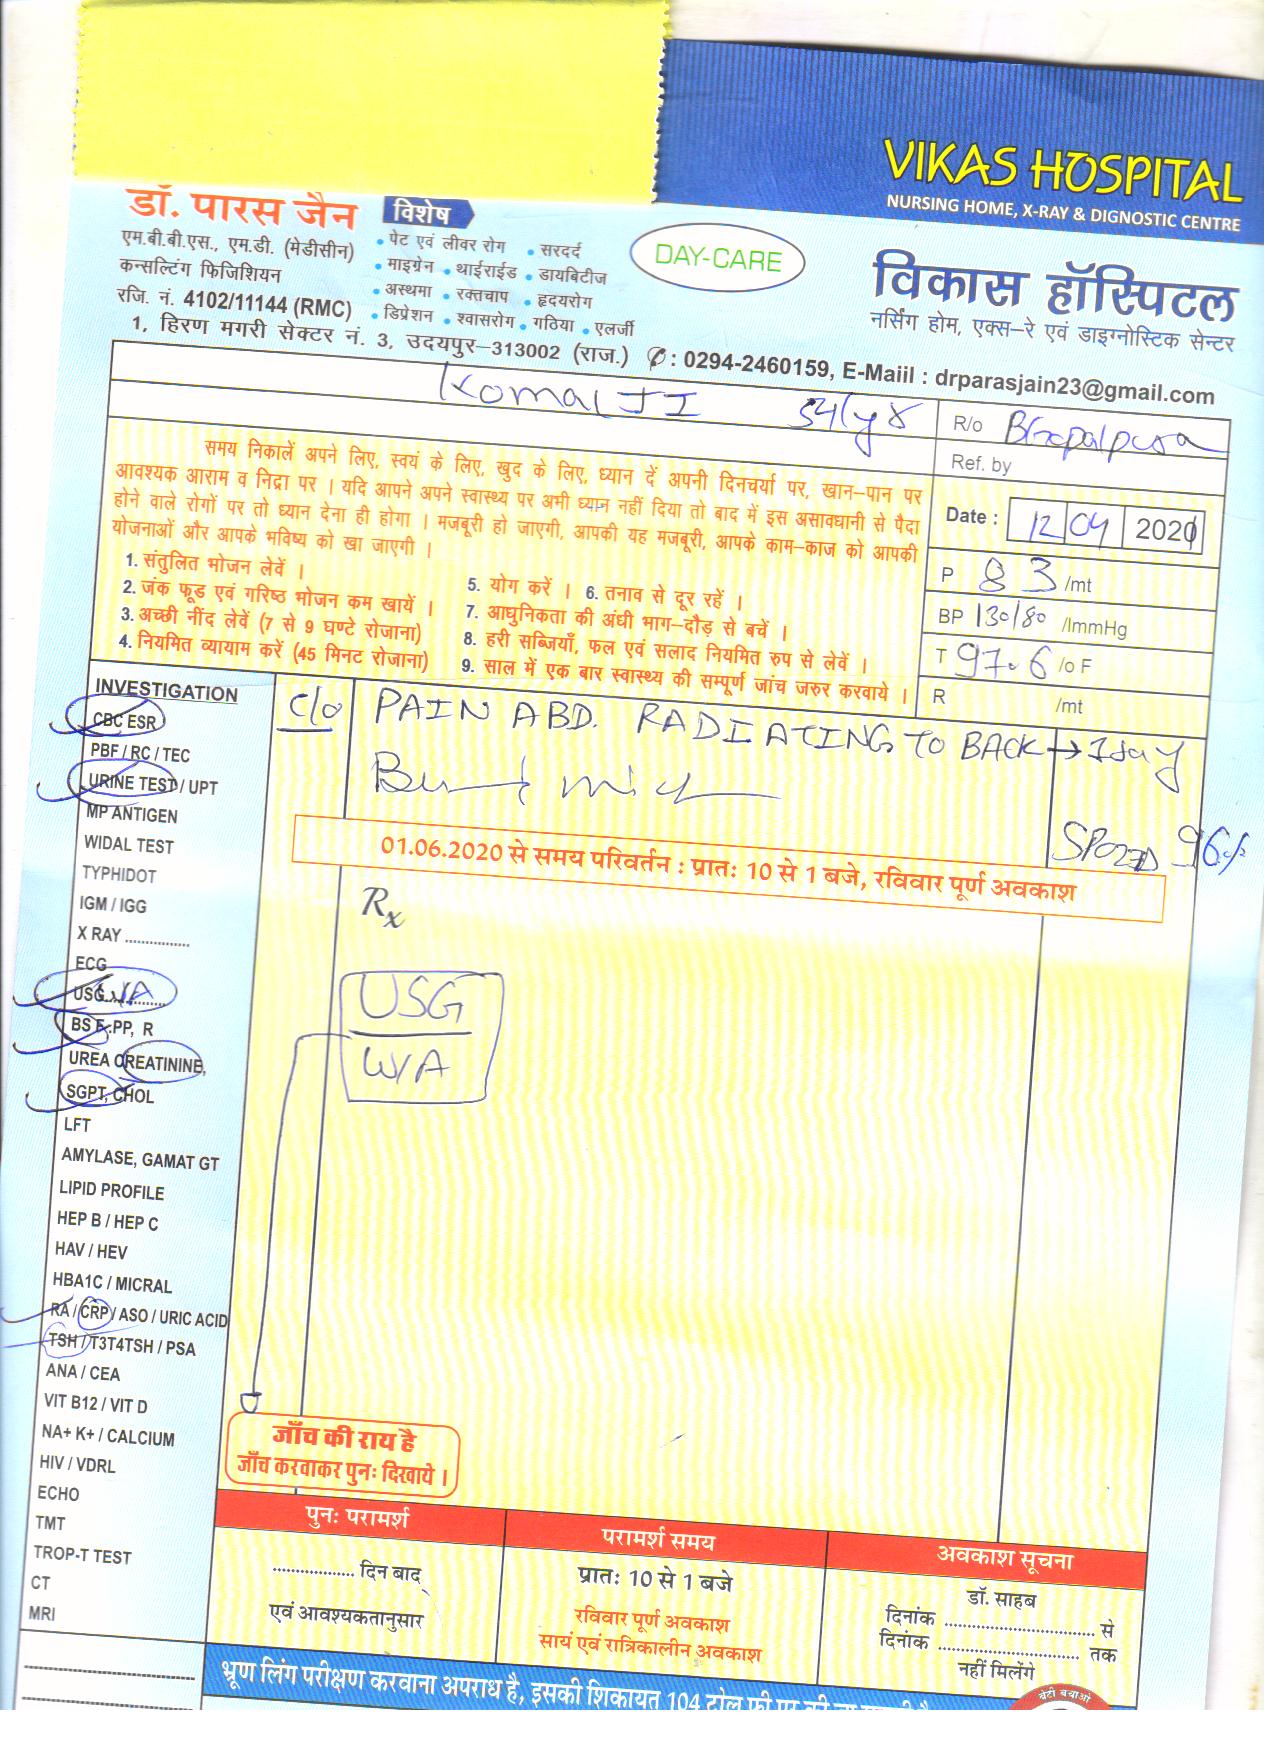 VIKAS HOSPITAL
NURSING HOME, X-RAY & DIGNOSTIC CENTRE
विकास हॉस्पिटल
नर्सिंग होम, एक्स–रे एवं डाइग्नोस्टिक सेन्टर
DAY-CARE
डॉ. पारस जैन
एम.बी.बी.एस., एम.डी. (मेडीसीन)
कन्सल्टिंग फिजिशियन
रजि. नं. 4102/11144 (RMC)
विशेष
• पेट एवं लीवर रोग • सरदर्द
• माइग्रेन • थाईराईड • डायबिटीज
• अस्थमा • रक्तचाप • हृदयरोग
• डिप्रेशन • श्वासरोग • गठिया • एलर्जी
1, हिरण मगरी सेक्टर नं. 3, उदयपुर–313002 (राज.) ✆: 0294-2460159, E-Maiil : drparasjain23@gmail.com
Komal JI
R/o
Ref. by
Date : 12 04 2020
P 83 /mt
BP 130/80 /ImmHg
T 97.6 /o F
R /mt
समय निकालें अपने लिए, स्वयं के लिए, खुद के लिए, ध्यान दें अपनी दिनचर्या पर, खान–पान पर
आवश्यक आराम व निद्रा पर । यदि आपने अपने स्वास्थ्य पर अभी ध्यान नहीं दिया तो बाद में इस असावधानी से पैदा
होने वाले रोगों पर तो ध्यान देना ही होगा । मजबूरी हो जाएगी, आपकी यह मजबूरी, आपके काम–काज को आपकी
योजनाओं और आपके भविष्य को खा जाएगी ।
1. संतुलित भोजन लेवें ।
2. जंक फूड एवं गरिष्ठ भोजन कम खायें ।
3. अच्छी नींद लेवें (7 से 9 घण्टे रोजाना)
4. नियमित व्यायाम करें (45 मिनट रोजाना)
5. योग करें । 6. तनाव से दूर रहें ।
7. आधुनिकता की अंधी भाग–दौड़ से बचें ।
8. हरी सब्जियाँ, फल एवं सलाद नियमित रुप से लेवें ।
9. साल में एक बार स्वास्थ्य की सम्पूर्ण जांच जरुर करवाये ।
INVESTIGATION
CBC ESR
PBF / RC / TEC
URINE TEST / UPT
MP ANTIGEN
WIDAL TEST
TYPHIDOT
IGM / IGG
X RAY ................
ECG
USG W/A
BS F.PP, R
UREA CREATININE,
SGPT, CHOL
LFT
AMYLASE, GAMAT GT
LIPID PROFILE
HEP B / HEP C
HAV / HEV
HBA1C / MICRAL
RA / CRP / ASO / URIC ACID
TSH / T3T4TSH / PSA
ANA / CEA
VIT B12 / VIT D
NA+ K+ / CALCIUM
HIV / VDRL
ECHO
TMT
TROP-T TEST
CT
MRI
C/o PAIN ABD. RADIATING TO BACK → 1 day
SPO2 96%
01.06.2020 से समय परिवर्तन : प्रातः 10 से 1 बजे, रविवार पूर्ण अवकाश
Rx
USG
W/A
जाँच की राय है
जाँच करवाकर पुनः दिखाये ।
पुनः परामर्श
................. दिन बाद
एवं आवश्यकतानुसार
परामर्श समय
प्रातः 10 से 1 बजे
रविवार पूर्ण अवकाश
सायं एवं रात्रिकालीन अवकाश
अवकाश सूचना
डॉ. साहब
दिनांक ................................ से
दिनांक ................................ तक
नहीं मिलेंगे
भ्रूण लिंग परीक्षण करवाना अपराध है, इसकी शिकायत 104 टोल फ्री पर की
बेटी बचाओ